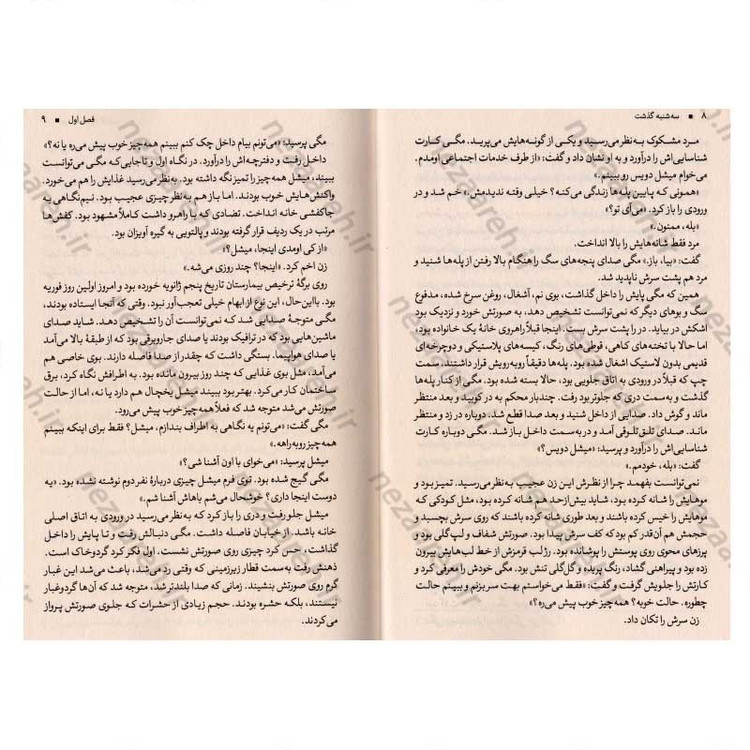 ۸ ■ سه‌شنبه گذشت
مرد مشکوک به‌نظر می‌رسید و یکی از گونه‌هایش می‌پرید. مگی کارت
شناسایی‌اش را درآورد و به او نشان داد و گفت: «از طرف خدمات اجتماعی اومدم.
می‌خوام میشل دویس رو ببینم.»
«همونی که پایین پله‌ها زندگی می‌کنه؟ خیلی وقته ندیدمش.» خم شد و در
ورودی را باز کرد. «می‌آی تو؟»
«بله، ممنون.»
مرد فقط شانه‌هایش را بالا انداخت.
گفت: «بیا، باز.» مگی صدای پنجه‌های سگ را هنگام بالا رفتن از پله‌ها شنید و
مرد هم پشت سرش ناپدید شد.
همین که مگی پایش را داخل گذاشت، بوی نم، آشغال، روغن سرخ شده، مدفوع
سگ و بوهای دیگر که نمی‌توانست تشخیص دهد، به صورتش خورد و نزدیک بود
اشکش در بیاید. در را پشت سرش بست. اینجا قبلاً راهروی خانهٔ یک خانواده بود،
اما حالا با تخته‌های کاهی، قوطی‌های رنگ، کیسه‌های پلاستیکی و دوچرخه‌ای
قدیمی بدون لاستیک اشغال شده بود. پله‌ها دقیقاً روبه‌رویش قرار داشتند. سمت
چپ که قبلاً در ورودی به اتاق جلویی بود، حالا بسته شده بود. مگی از کنار پله‌ها
گذشت و به‌سمت دری که جلوتر بود رفت. چندبار محکم به در کوبید و بعد منتظر
ماند و گوش داد. صدایی از داخل شنید و بعد صدا قطع شد. دوباره در زد و منتظر
ماند. صدای تلق‌تلوقی آمد و در به‌سمت داخل باز شد. مگی دوباره کارت
شناسایی‌اش را درآورد و پرسید: «میشل دویس؟»
گفت: «بله، خودمم.»
نمی‌توانست بفهمد چرا از نظرش این زن عجیب به‌نظر می‌رسید. تمیز بود و
موهایش را شانه کرده بود، شاید بیش‌ازحد هم شانه کرده بود، مثل کودکی که
موهایش را خیس کرده باشند و بعد طوری شانه کرده باشند که روی سرش بچسبد و
حجمش هم آن‌قدر کم بود که کف سرش پیدا بود. صورتش شفاف و لپ گلی بود و
پرزهای محوی روی پوستش را پوشانده بود. رژلب قرمزش از خط لب‌هایش بیرون
زده بود و پیراهنی گشاد، رنگ پریده و گل‌گلی تنش بود. مگی خودش را معرفی کرد و
کارتش را جلویش گرفت و گفت: «فقط می‌خواستم بهت سر بزنم و ببینم حالت
چطوره. حالت خوبه؟ همه‌چیز خوب پیش می‌ره؟»
زن سرش را تکان داد.
فصل اول ■ ۹
مگی پرسید: «می‌تونم بیام داخل چک کنم ببینم همه‌چیز خوب پیش می‌ره یا نه؟»
داخل رفت و دفترچه‌اش را درآورد. در نگاه اول و تاجایی‌که مگی می‌توانست
ببیند، میشل همه‌چیز را تمیز نگه داشته بود. به‌نظر می‌رسید غذایش را هم می‌خورد.
واکنش‌هایش خوب بودند. اما باز هم به‌نظر چیزی عجیب بود. نیم‌نگاهی به
جاکفشی خانه انداخت. تضادی که با راهرو داشت کاملاً مشهود بود. کفش‌ها
مرتب در یک ردیف قرار گرفته بودند و پالتویی به گیره آویزان بود.
«از کی اومدی اینجا، میشل؟»
زن اخم کرد. «اینجا؟ چند روزی می‌شه.»
روی برگهٔ ترخیص بیمارستان تاریخ پنجم ژانویه خورده بود و امروز اولین روز فوریه
بود. بااین‌حال، این نوع از ابهام خیلی تعجب‌آور نبود. وقتی که آنجا ایستاده بودند،
مگی متوجهٔ صدایی شد که نمی‌توانست آن را تشخیص دهد. شاید صدای
ماشین‌هایی بود که در ترافیک بودند یا صدای جاروبرقی بود که از طبقهٔ بالا می‌آمد
یا صدای هواپیما. بستگی داشت که چقدر از صدا فاصله دارند. بوی خاصی هم
می‌آمد، مثل بوی غذایی که چند روز بیرون مانده بود. به اطرافش نگاه کرد، برق
ساختمان کار می‌کرد. بهتر بود ببیند میشل یخچال هم دارد یا نه، اما از حالت
صورتش می‌شد متوجه شد که فعلاً همه‌چیز خوب پیش می‌رود.
مگی گفت: «می‌تونم یه نگاهی به اطراف بندازم، میشل؟ فقط برای اینکه ببینم
همه‌چیز روبه‌راهه.»
میشل پرسید: «می‌خوای با اون آشنا شی؟»
مگی گیج شده بود. توی فرم میشل چیزی دربارهٔ نفر دوم نوشته نشده بود. «یه
دوست اینجا داری؟ خوشحال می‌شم باهاش آشنا شم.»
میشل جلو رفت و دری را باز کرد که به‌نظر می‌رسید در ورودی به اتاق اصلی
خانه باشد. از خیابان فاصله داشت. مگی دنبالش رفت و تا پایش را داخل
گذاشت، حس کرد چیزی روی صورتش نشست. اول فکر کرد گردوخاک است.
ذهنش رفت به‌سمت قطار زیرزمینی که وقتی رد می‌شد، باعث می‌شد این غبار
گرم روی صورتش بنشیند. زمانی که صدا بلندتر شد، متوجه شد که آن‌ها گردوغبار
نیستند، بلکه حشره بودند. حجم زیادی از حشرات که جلوی صورتش پرواز
می‌کردند.
nezareh.ir